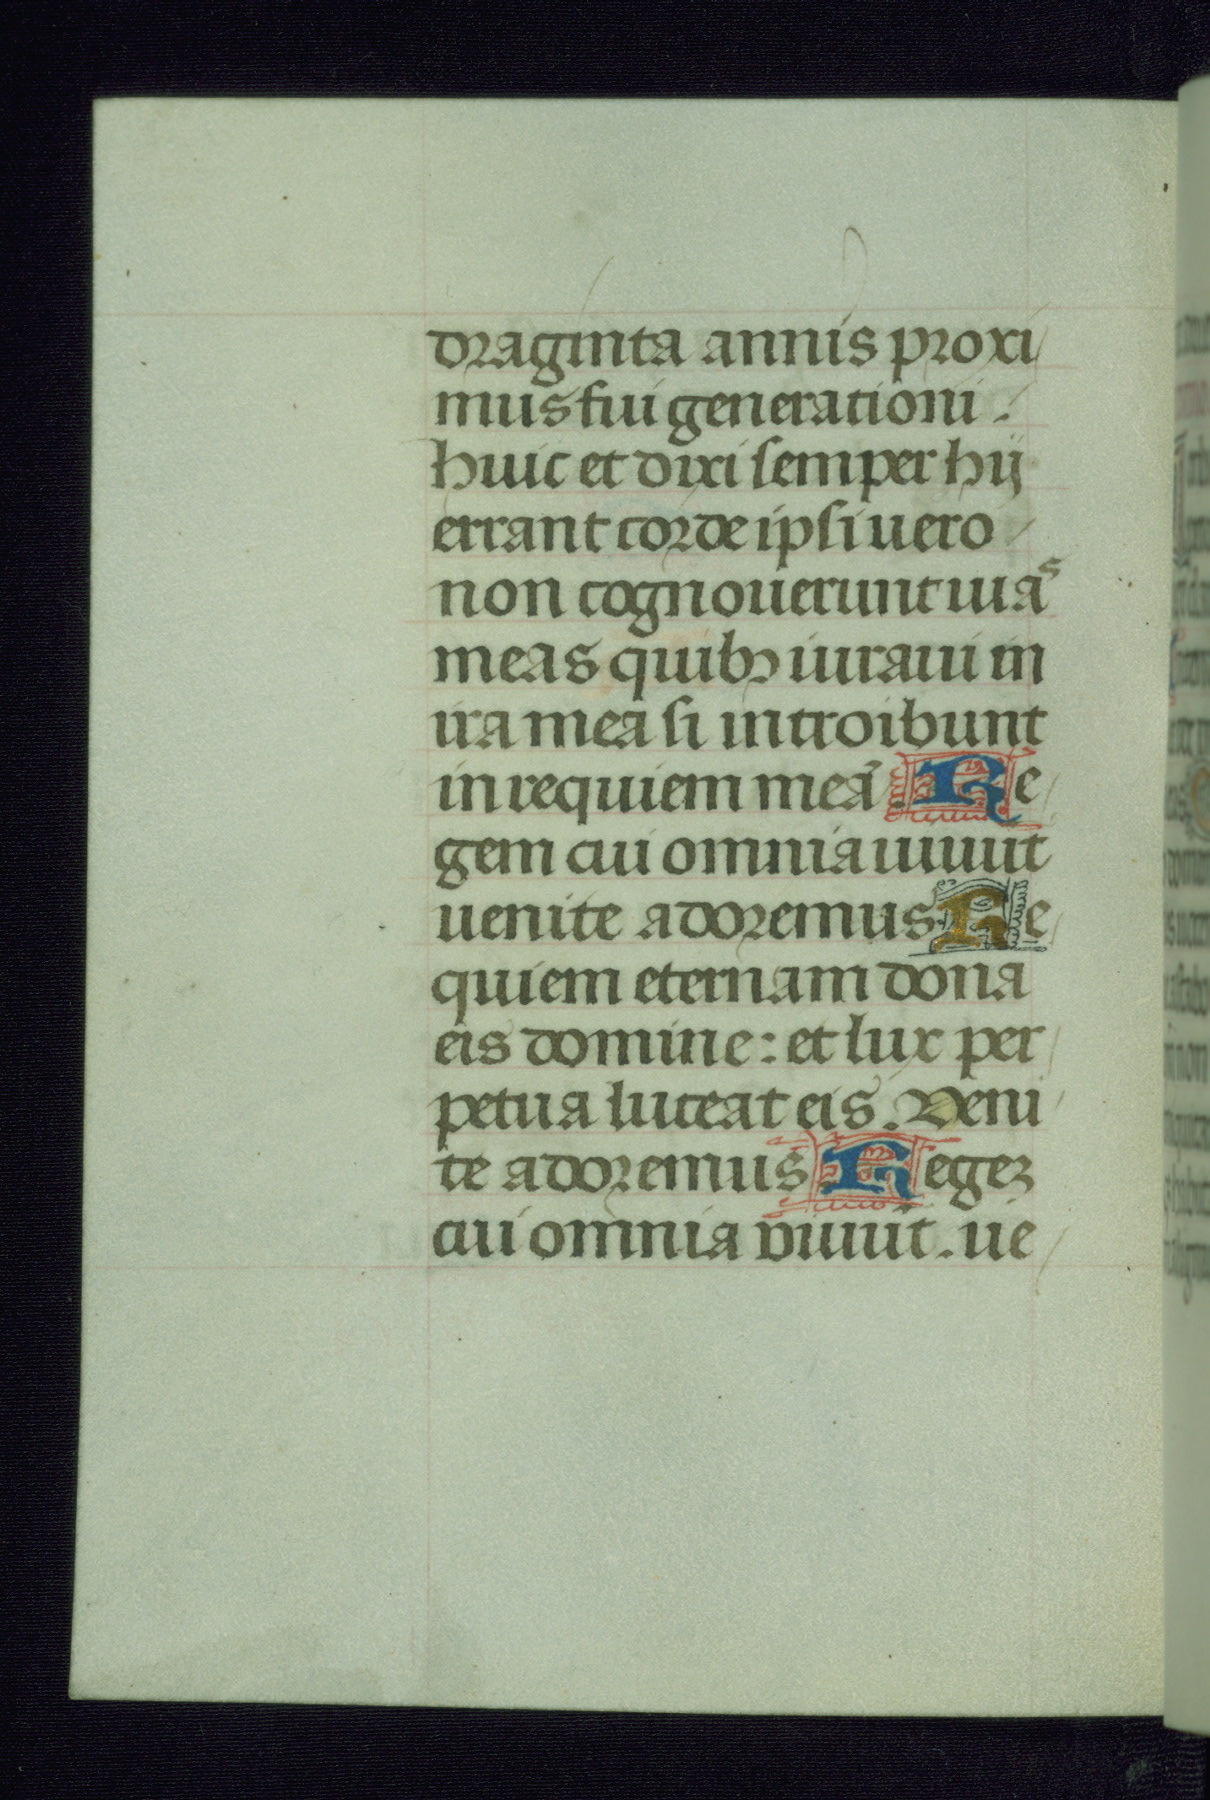 draginta annis proxi
mus fui generationi .
huic et dixi semper hij
errant corde ipsi uero
non cognouerunt uias
meas quibꝫ iuraui in
ira mea si introibunt
in requiem meā Re
gem cui omnia uiuūt
uenite adoremus Re
quiem eternam dona
eis domine : et lux per
petua luceat eis . Veni
te adoremus Regeꝫ
cui omnia viuūt . ue